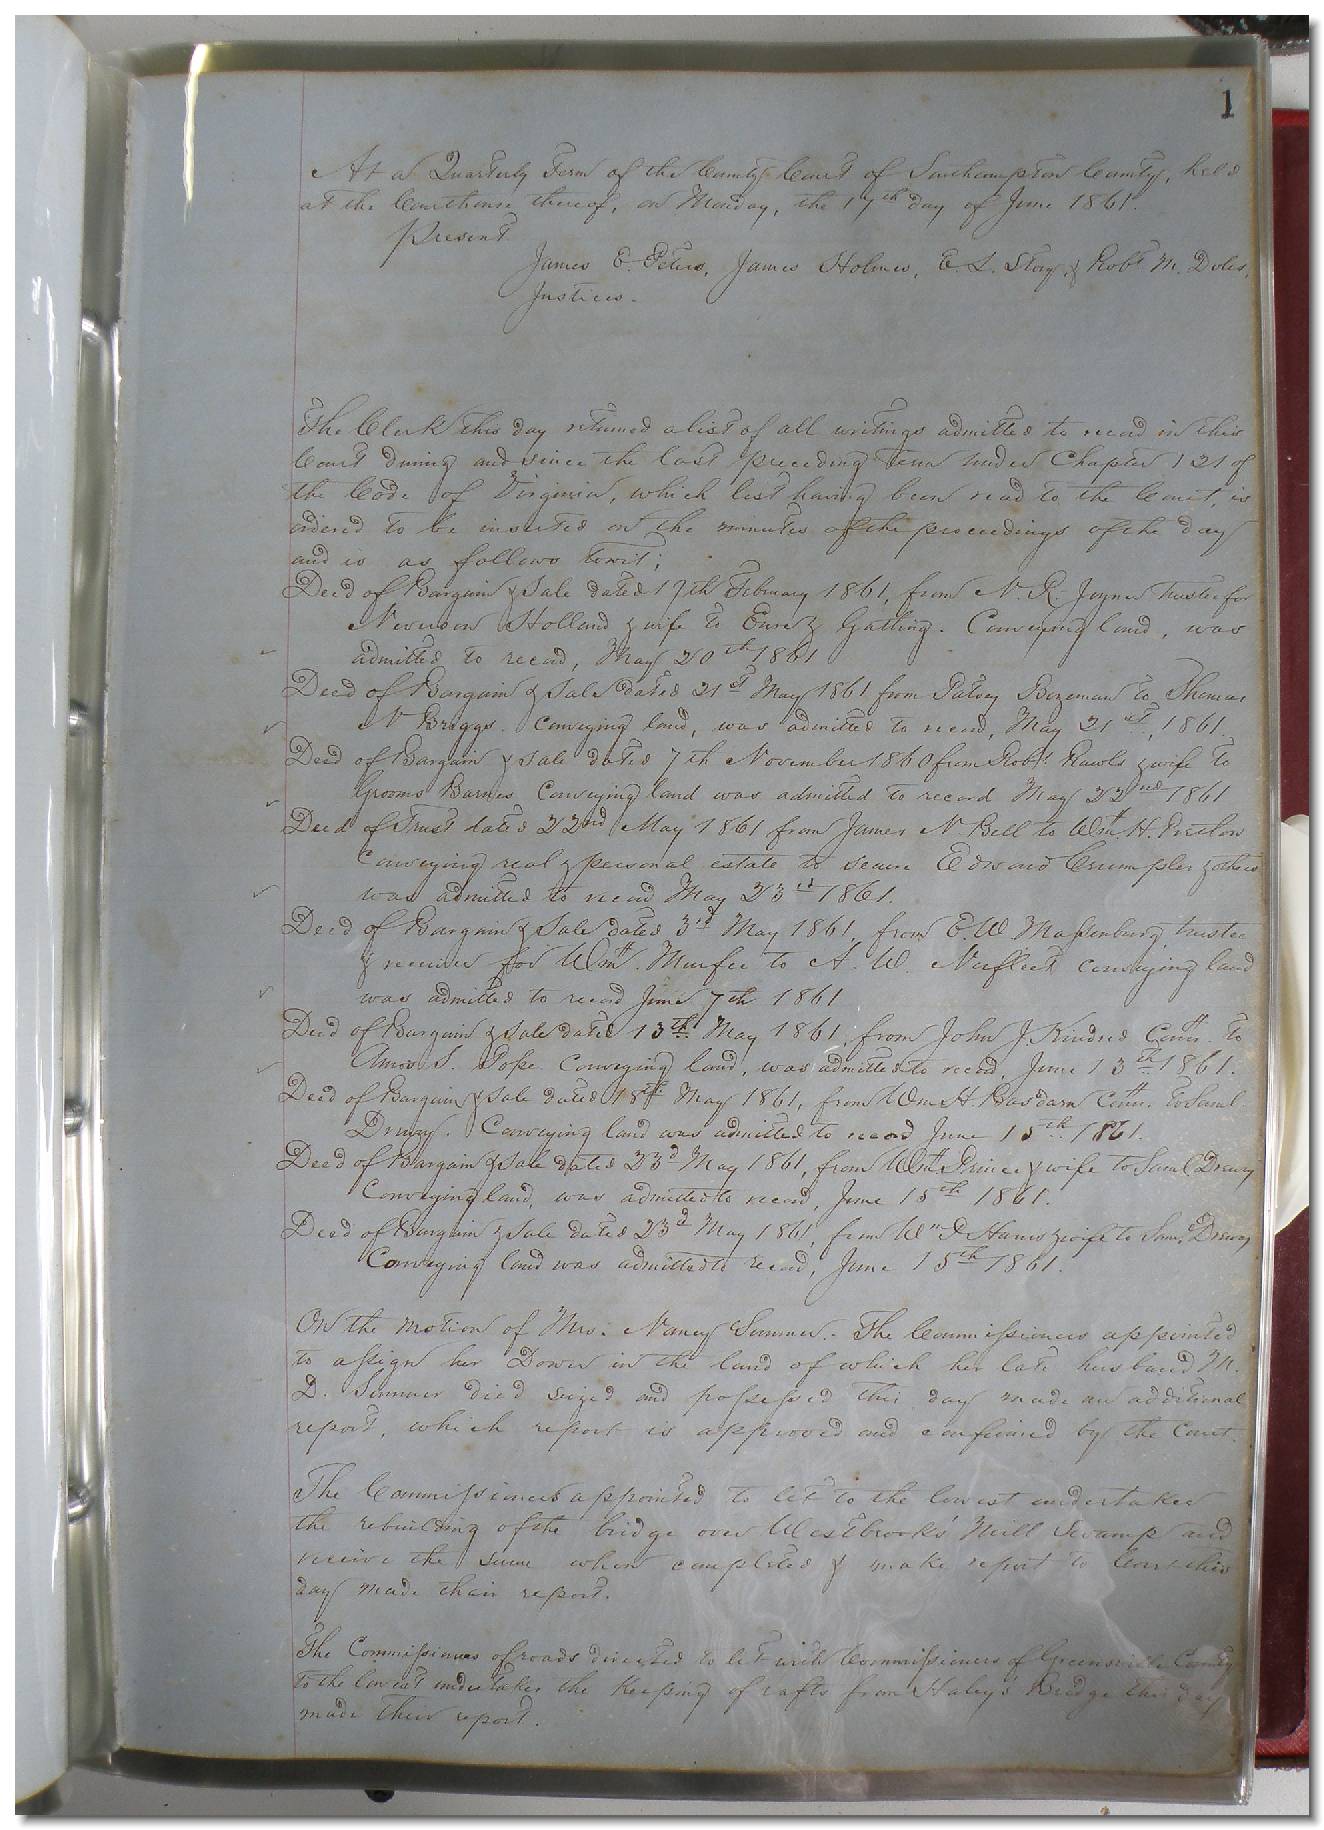 1
At a Quarterly Term of the County Court of Southampton County, held
at the Courthouse thereof, on Monday, the 17th day of June 1861.
Present
James E. Peters, James Holmes, E. S. Story & Robt M. Doles,
Justices.
The Clerk this day returned a list of all writings admitted to record in this
Court during and since the last preceding term under Chapter 121 of
the Code of Virginia, which list having been read to the Court, is
ordered to be inserted on the minutes of the proceedings of the day
and is as follows towit;
Deed of Bargain & Sale dated 17th February 1861, from N. R. Joyner trustee for
Newsom Holland & wife to Gatling. Conveying land, was
admitted to record, May 20th 1861
Deed of Bargain & Sale dated 21st May 1861 from Patsey Bozeman to Thomas
N Briggs. Conveying land, was admitted to record, May 21st, 1861.
Deed of Bargain & Sale dated 7th November 1860 from Robt Rawls & wife to
Grooms Barnes Conveying land was admitted to record May 22nd 1861
Deed of Trust dated 22nd May 1861 from James N. Bell to Wm. H. Preston
Conveying real & personal estate to secure Edward Crumpler & others
was admitted to record May 23rd 1861.
Deed of Bargain & Sale dated 3rd May 1861, from E. W Massenburg, trustee
& receiver for Wm. Murfee to A. W. Norfleet conveying land
was admitted to record June 7th 1861
Deed of Bargain & Sale dated 13th May 1861, from John J. Kindred Comr. to
Amos S. Pope Conveying land, was admitted to record, June 13th 1861.
Deed of Bargain & Sale dated 18th May 1861, from Wm H. Barham Comr. to Saml
Drewry. Conveying land was admitted to record June 15th 1861.
Deed of Bargain & Sale dated 23d May 1861, from Wm Prince & wife to Saml Drewry
Conveying land, was admitted to record, June 15th 1861.
Deed of Bargain & Sale dated 23d May 1861, from Wm D Harris & wife to Saml Drewry
Conveying land was admitted to record, June 15th 1861.
On the motion of Mrs. Nancy Sumner. The Commissioners appointed
to assign her Dower in the land of which her late husband M.
D. Sumner died seized and possessed this day made an additional
report, which report is approved and confirmed by the Court.
The Commissioners appointed to let to the lowest undertaker
the rebuilding of the bridge over Westbrooks' Mill Swamp and
receive the same when completed & make report to Court this
day made their report.
The Commissioners of roads directed to let with Commissioners of Greensville County
to the lowest undertaker the Keeping of rafts from Haley's Bridge this day
made their report.